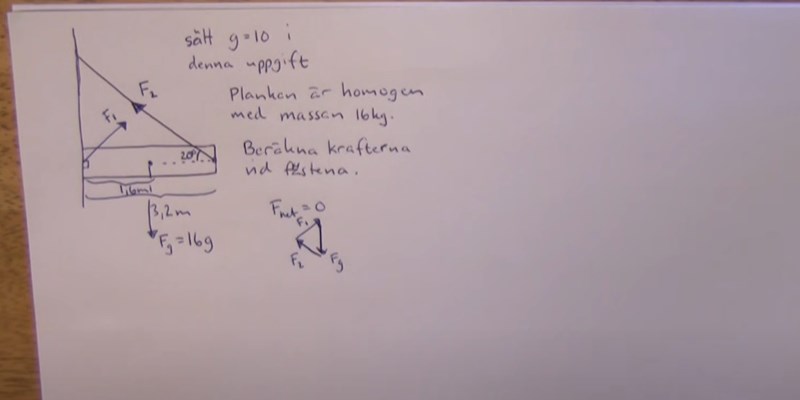 sätt g=10 i
denna uppgift
Plankan är homogen
med massan 16kg.
Beräkna krafterna
vid fästena.
F₂
F₁
20°
1,6m
3,2m
Fg=16g
Fnet=0
F₁
F₂
Fg